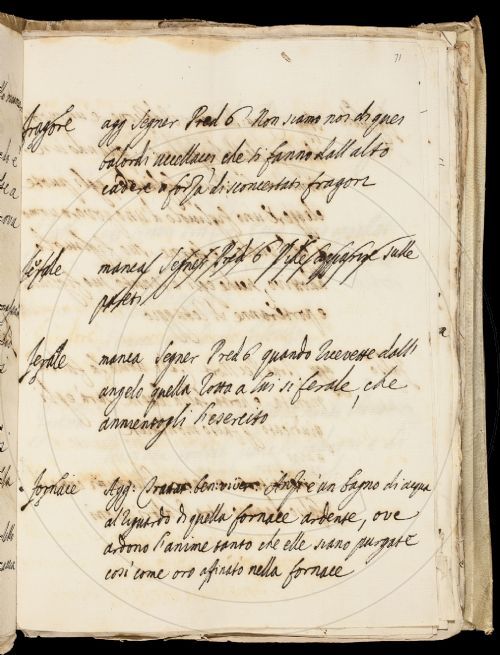 71
fragore agg Segner Pred 6 Non siamo noi di ques
balordi uccellacci che si fanno dall alto
cadere a forza di sconcertati fragori
manca Segner Pred 6 sulle
pareti
ferale manca Segner Pred 6 quando ricevette dall
angelo quella rotta a lui si ferale, che
annientogli l'esercito
fornace Agg: ben viver è un bagno di acqua
al riguardo di quella fornace ardente, ove
ardono l'anime tanto che elle siano purgate
così come oro affinato nella fornace